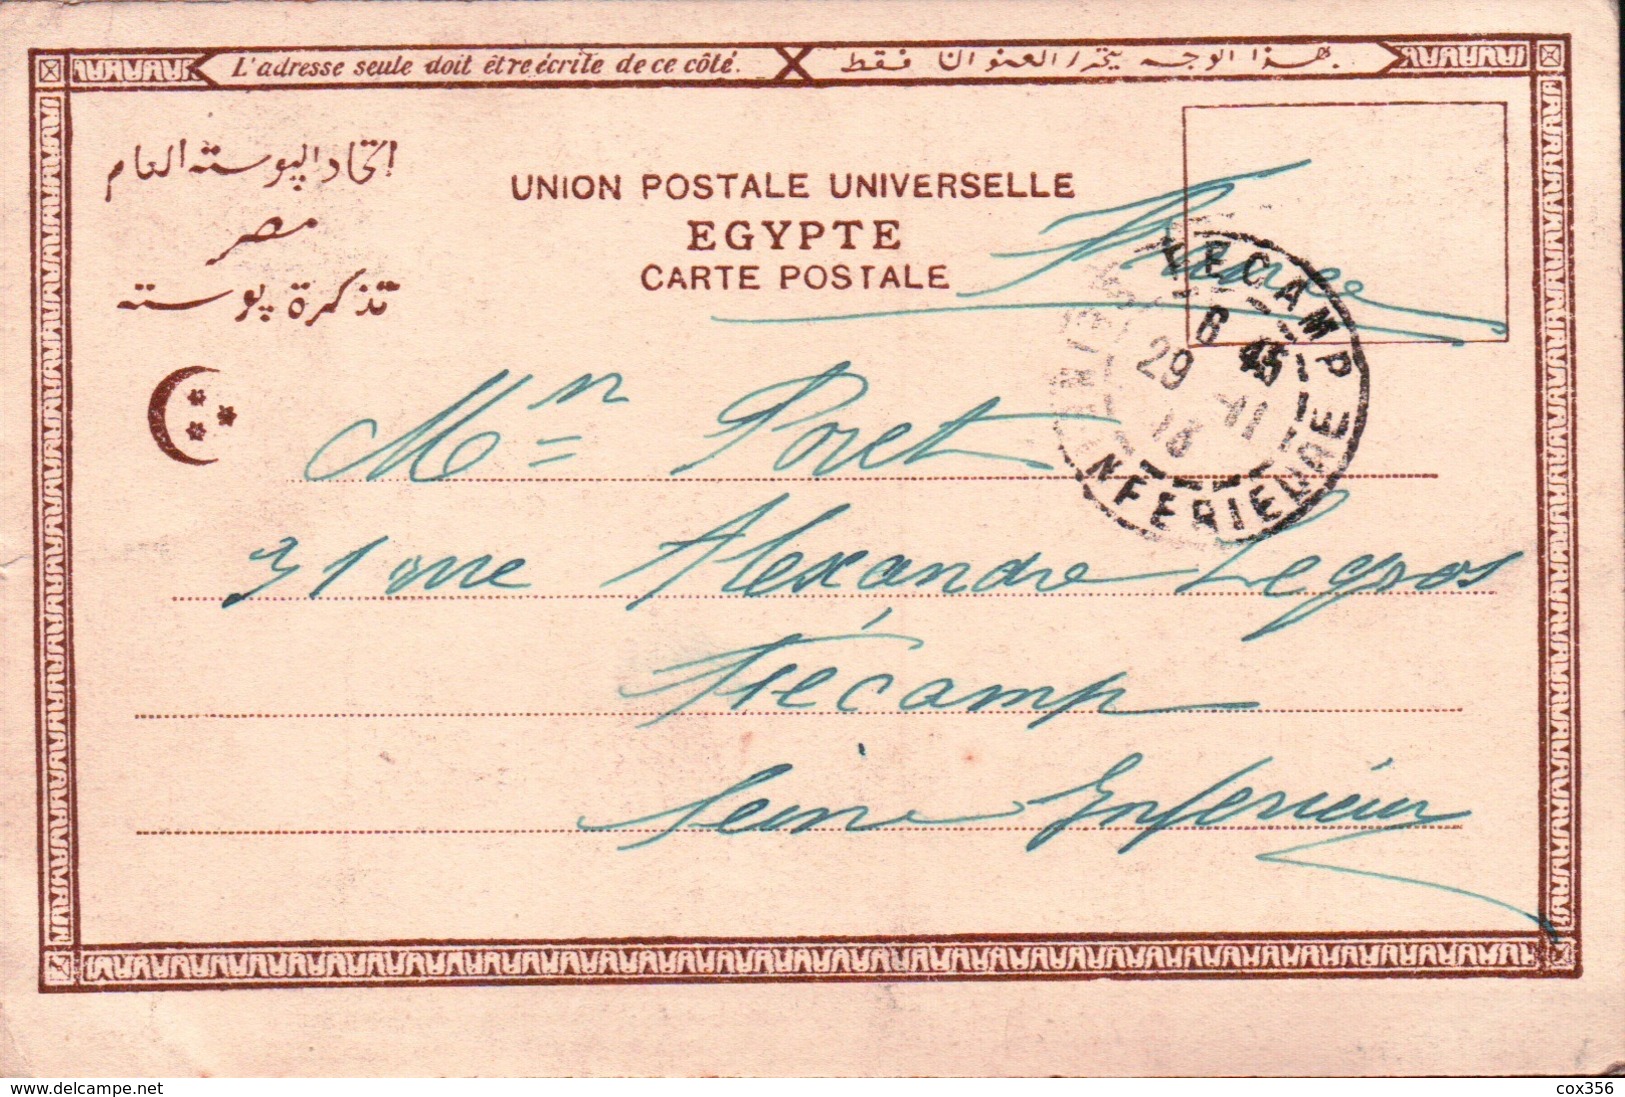 L'adresse seule doit être écrite de ce côté.
هذا الوجه يحرر العنوان فقط
اتحاد البوسته العام
مصر
تذكرة بوسته
UNION POSTALE UNIVERSELLE
EGYPTE
CARTE POSTALE
France
FECAMP
6 45
29 -11
13
SEINE INFERIEURE
Mⁿ Poret
31 rue Alexandre Legros
Fécamp
Seine Inférieur
www.delcampe.net
cox356